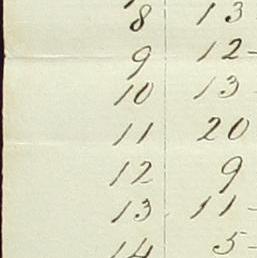 8 13
9 12-
10 13-
11 20
12 9
13 11-
14 5-